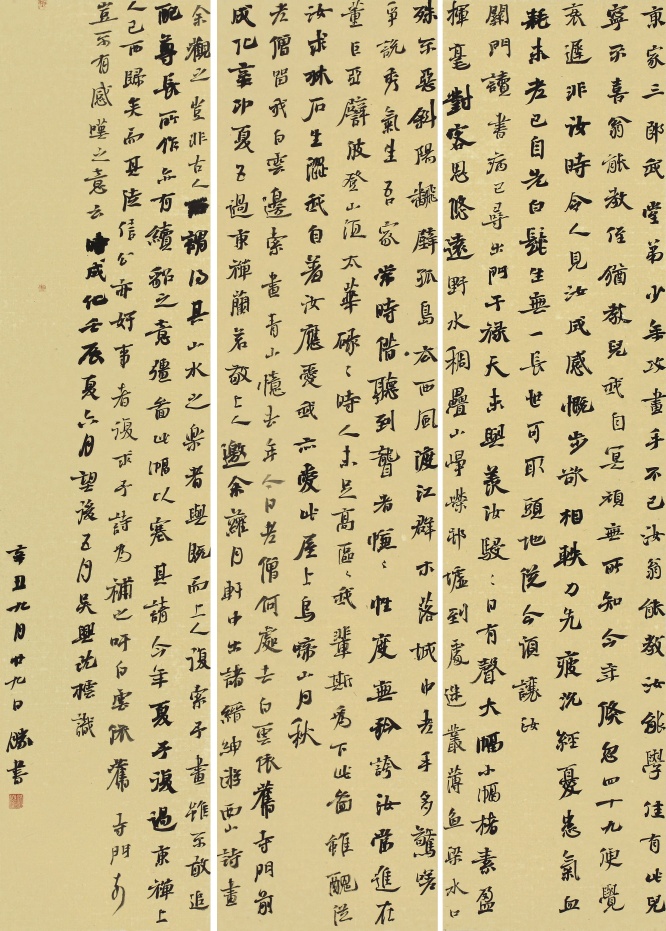 東家三郎我堂弟少年攻畫手不已汝翁能教汝能學佳有此兒
寧不喜翁能教侄猶教兒我自冥頑無所知今年倏忽四十九便覺
衰遲非汝時令人見汝成感慨步欲相軼力先疲況經憂患氣血
耗未老已自先白髭生無一長世可取頭地從今須讓汝
關門讀書病已尋出門干祿天未與羨汝駸〻日有聲大幅小幅楮素盈
揮毫對客思悠遠野水稠疊山嶸邪墟到處迷叢薄魚梁水口
殊不惡斜陽翻麟孤島衣西風渡江群木落城中老手多驚嗟
爭說秀氣生吾家常時偕聽到聾者恆〻性度無矜誇汝當進在
董巨亞劈波登山須太華碌〻時人未足高區〻我輩斯為下此圖雖醜從
汝求林石生澀我自羞汝應愛我亦愛此屋上烏啼山月秋
老僧留我白雲邊索畫青山憶去年今日老僧何處去白雲依舊寺門前
成化辛卯夏五過東禪蘭若敬上人邀余蘿月軒中出諸縉紳遊西山詩畫
余觀之豈非古人謂得其山水之樂者與既而上人復索予畫雖不敢追
配尊長所作亦有續貂之意彊留此幅以塞其請今年夏予復過東禪上
人已西歸矣而其徒信公亦好事者復求予詩為補之吁白雲依舊寺門如
豈不有感嘆之意云時成化壬辰夏六月望後五月吳興沈檯識
辛丑九月廿九日勝書